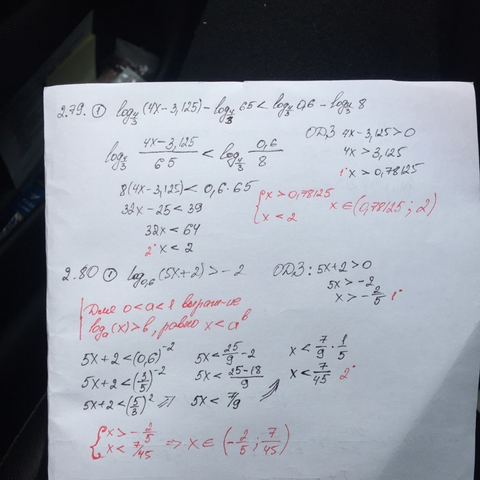 2.79. ① log₄/₃(4x-3,125)-log₄/₃ 65 < log₄/₃ 0,6 - log₄/₃ 8
log₄/₃ (4x-3,125)/65 < log₄/₃ 0,6/8
ОДЗ 4x-3,125>0
4x>3,125
1• x>0,78125
8(4x-3,125)<0,6·65
32x-25<39
32x<64
2• x<2
{ x>0,78125
x<2
x∈(0,78125; 2)
2.80 ① log₀,₆(5x+2)>-2
ОДЗ: 5x+2>0
5x>-2
x>-2/5 1•
Для 0<a<1 выраж-ие
logₐ(x)>b, равно x<aᵇ
5x+2<(0,6)⁻²
5x+2<(3/5)⁻²
5x+2<(5/3)² ⇒
5x<25/9-2
5x<(25-18)/9
5x<7/9 ⇒
x<7/9·1/5
x<7/45 2•
{ x>-2/5
x<7/45 ⇒ x∈(-2/5; 7/45)